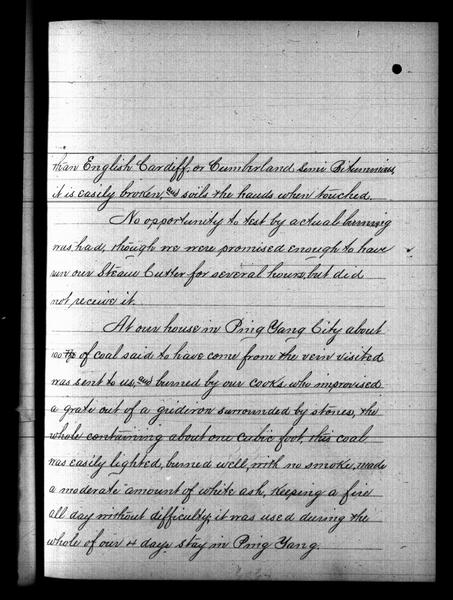 than English Cardiff, or Cumberland Semi Bituminous,
it is easily broken, and soils the hands when touched.
No opportunity to test by actual burning
was had, though we were promised enough to have
run our Steam Cutter for several hours, but did
not receive it.
At our house in Ping Yang City about
100 lbs of coal said to have come from the vein visited
was sent to us, and burned by our cooks who improvised
a grate out of a gridiron surrounded by stones, the
whole containing about one cubic foot, this coal
was easily lighted, burned well, with no smoke, made
a moderate amount of white ash, keeping a fire
all day without difficulty, it was used during the
whole of our 4 days stay in Ping Yang.